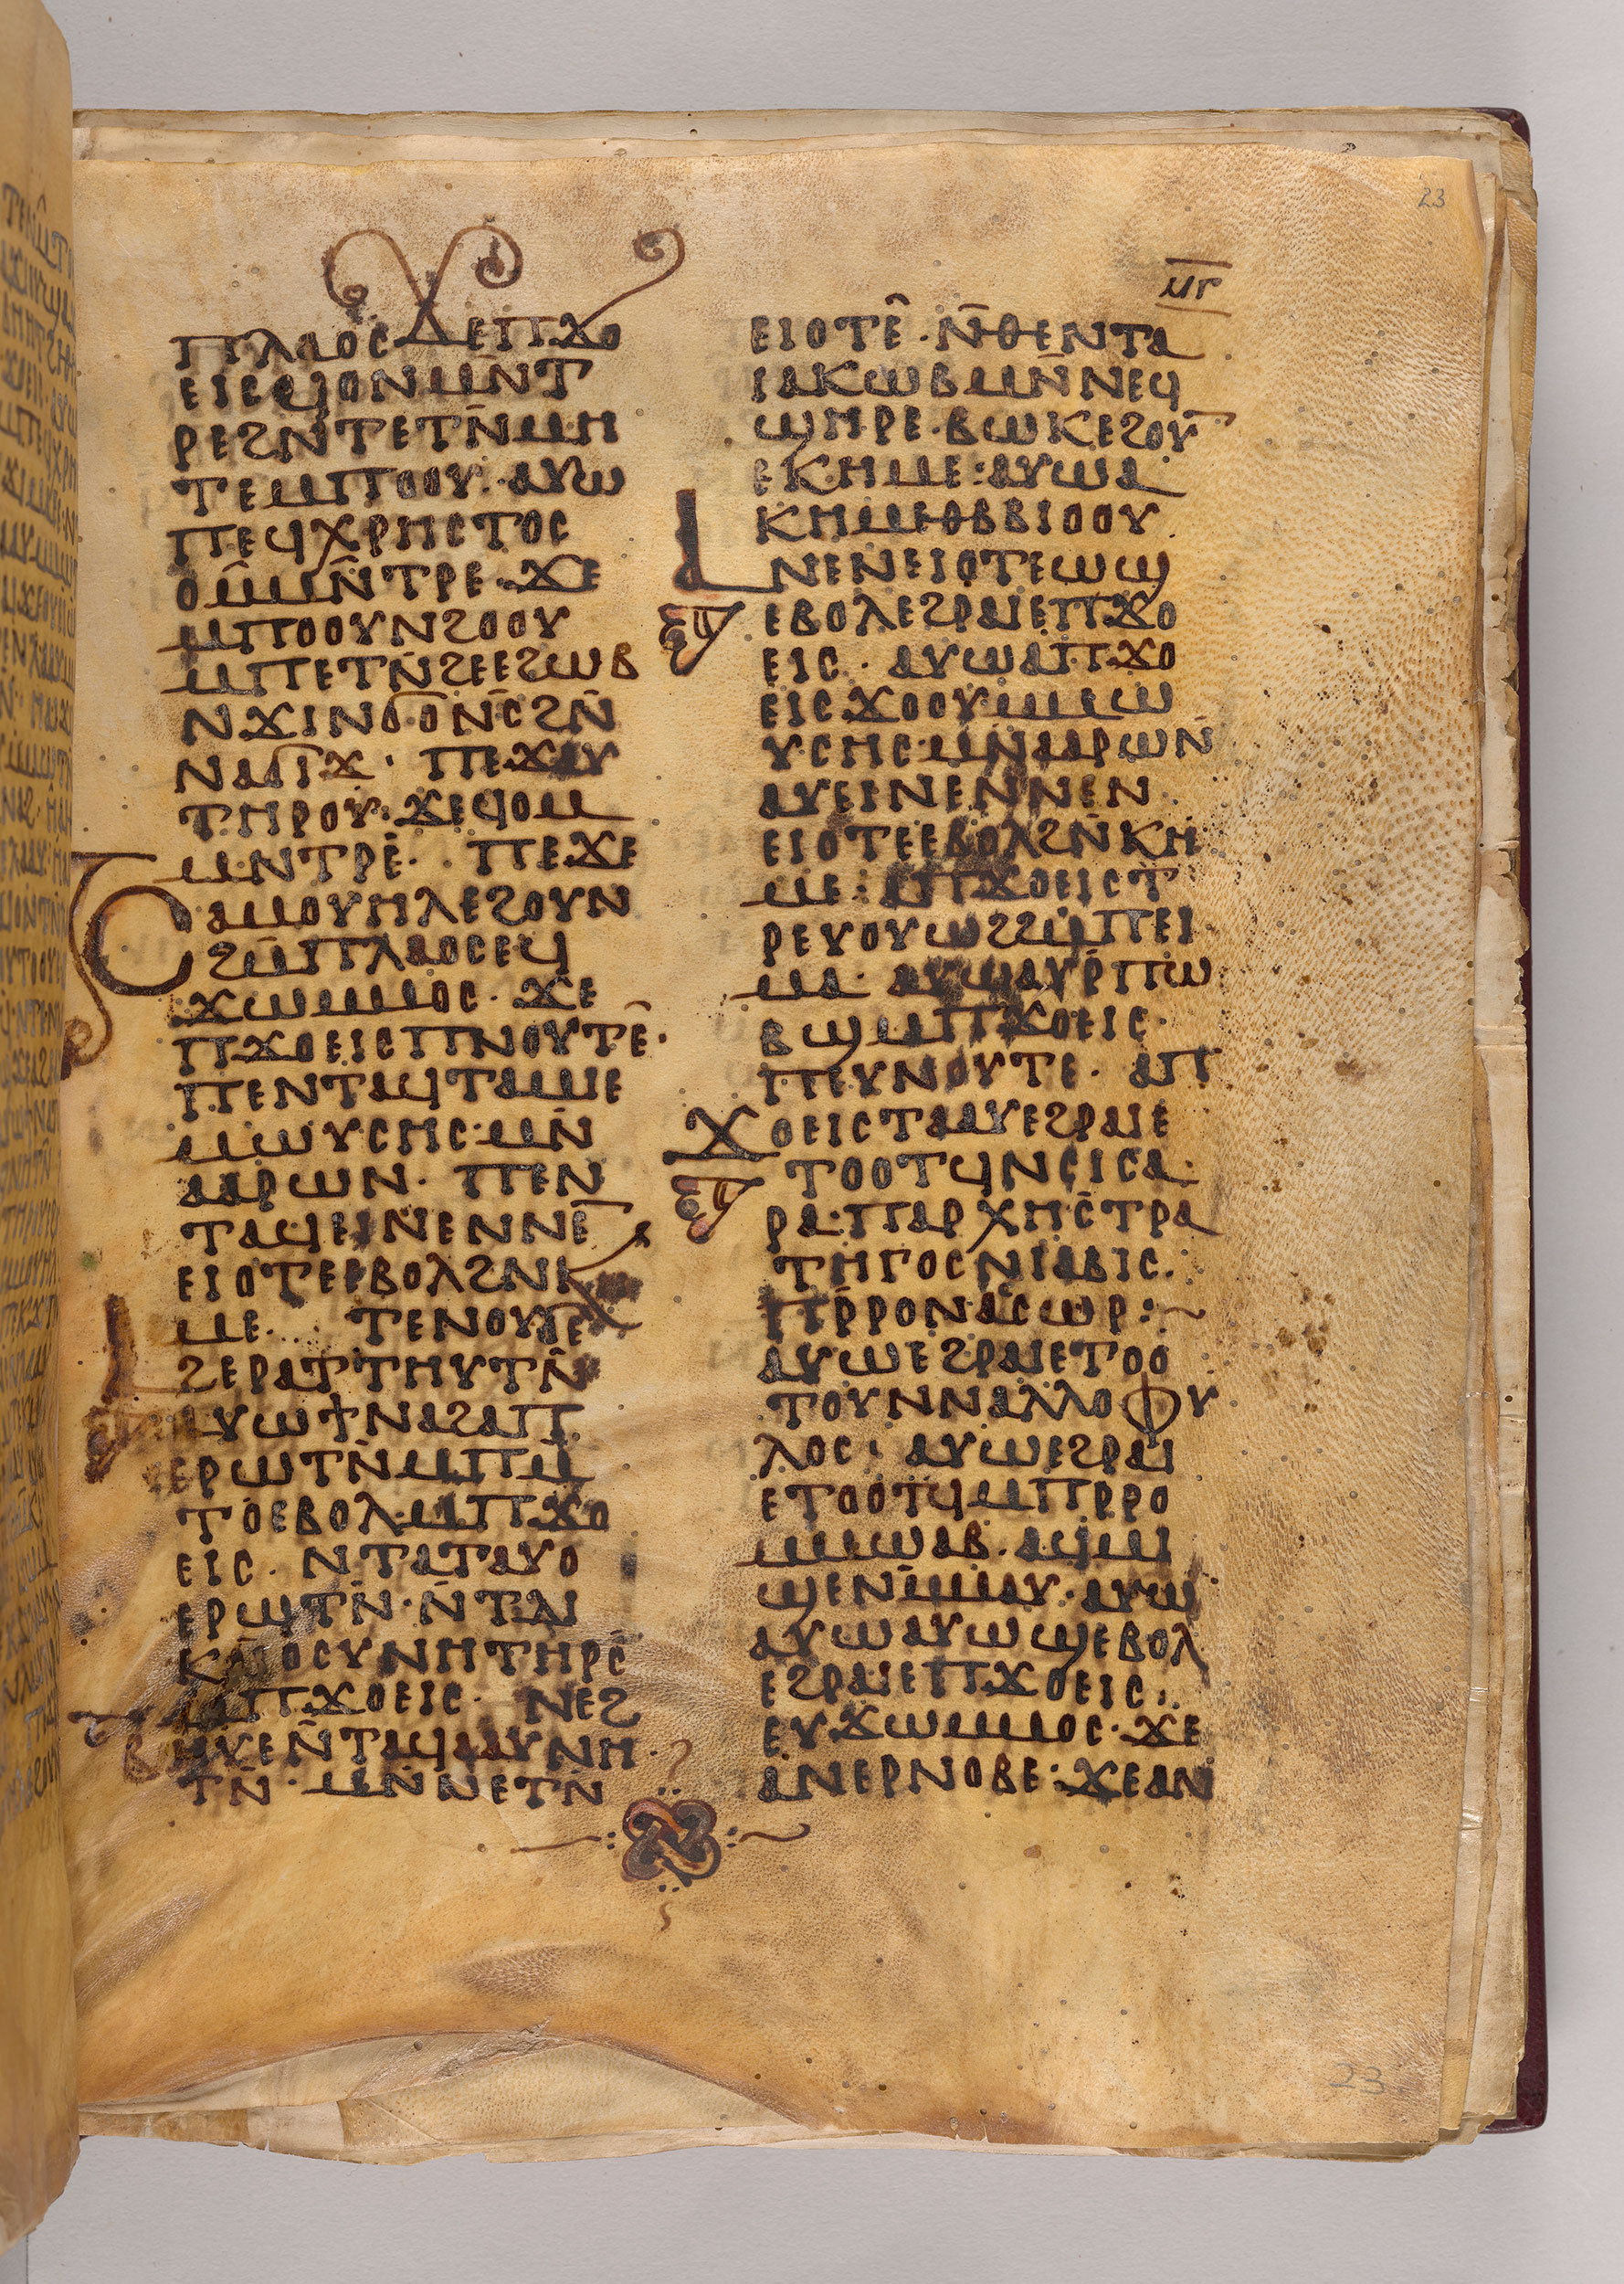 23
ⲙⲅ
ⲡⲗⲁⲟⲥ ϫⲉⲡϫⲟ
ⲉⲓⲥϥⲟⲛⲙⲛ̄ⲧ
ⲣⲉϩⲛ̄ⲧⲉⲧⲛ̄ⲙⲏ
ⲧⲉⲙⲡⲟⲟⲩ· ⲁⲩⲱ
ⲡⲉϥⲭⲣⲏⲥⲧⲟⲥ
ⲟ̄ⲙⲙⲛ̄ⲧⲣⲉ· ϫⲉ
ⲙⲡⲟⲟⲩⲛϩⲟⲟⲩ
ⲙⲡⲉⲧⲛ̄ϩⲉⲉϩⲱⲃ
ⲛϫⲓⲛϭⲟⲛ̄ⲥϩⲛ̄
ⲛⲁϭⲓϫ· ⲡⲉϫⲁⲩ
ⲧⲏⲣⲟⲩ· ϫⲉϥⲟⲙ
ⲙⲛⲧⲣⲉ̄· ⲡⲉϫⲉ
ⲥⲁⲙⲟⲩⲏⲗⲉϩⲟⲩⲛ
ϩⲙ̄ⲡⲗⲁⲟⲥⲉϥ
ϫⲱⲙⲙⲟⲥ· ϫⲉ
ⲡϫⲟⲉⲓⲥⲡⲛⲟⲩⲧⲉ̂·
ⲡⲉⲛⲧⲁϥⲧⲁⲙⲉ
ⲙⲱⲩⲥⲏⲥ·ⲙⲛ̄
ⲁⲁⲣⲱⲛ· ⲡⲉⲛ
ⲧⲁϥⲉⲓⲛⲉⲛⲛⲉ̄
ⲉⲓⲟⲧⲉⲉⲃⲟⲗϩⲛⲕⲏ
ⲙⲉ· ⲧⲉⲛⲟⲩϭⲉ
ⲁϩⲉⲣⲁⲧⲧⲏⲩⲧⲛ̄
ⲁⲩⲱϯⲛⲁϩⲁⲡ
ⲉⲣⲱⲧⲛ̄ⲙⲡⲙ̄
ⲧⲟⲉⲃⲟⲗ·ⲙⲡϫⲟ
ⲉⲓⲥ· ⲛⲧⲁⲧⲁⲩⲟ
ⲉⲣⲱⲧⲛ̄·ⲛ̄ⲧⲇⲓ
ⲕⲁⲓⲟⲥⲩⲛⲏⲧⲏⲣⲥ̄
ⲙⲡϫⲟⲉⲓⲥ· ⲛⲉϩ
ⲃⲏⲩⲉⲛ̄ⲧⲁϥⲁⲁⲩⲛⲏ
ⲧⲛ̄· ⲙⲛ̄ⲛⲉⲧⲛ̄
ⲉⲓⲟⲧⲉ̂· ⲛ̄ⲑⲉⲛⲧⲁ
ⲓⲁⲕⲱⲃⲙⲛ̄ⲛⲉϥ
ϣⲏⲣⲉ·ⲃⲱⲕⲉϩⲟⲩ̄
ⲉⲕⲏⲙⲉ:ⲁⲩⲱⲁ
ⲕⲏⲙⲉⲑⲃⲃⲓⲟⲟⲩ
ⲁⲛⲉⲛⲉⲓⲟⲧⲉⲱϣ
ⲉⲃⲟⲗⲉϩⲣⲁⲓⲉⲡϫⲟ
ⲉⲓⲥ· ⲁⲩⲱⲁⲡϫⲟ
ⲉⲓⲥϫⲟⲟⲩ·ⲙⲙⲱ
ⲩⲥⲏⲥ·ⲙⲛ̄ⲁⲁⲣⲱⲛ
ⲁⲩⲉⲓⲛⲉⲛⲛⲉⲛ
ⲉⲓⲟⲧⲉⲉⲃⲟⲗϩⲛ̄ⲕⲏ
ⲙⲉ: ⲁⲡϫⲟⲉⲓⲥⲧ
ⲣⲉⲩⲟⲩⲱϩϩⲙ̄ⲡⲉⲓ
ⲙⲁ· ⲁⲩⲱⲁⲩⲣ̄ⲡⲱ
ⲃϣⲙⲡϫⲟⲉⲓⲥ·
ⲡⲉⲩⲛⲟⲩⲧⲉ· ⲁⲡ
ϫⲟⲉⲓⲥⲧⲁⲁⲩⲉϩⲣⲁⲓⲉ
ⲧⲟⲟⲧϥⲛⲥⲓⲥⲁ
ⲣⲁ·ⲡⲁⲣⲭⲏⲥⲧⲣⲁ
ⲧⲏⲅⲟⲥⲛⲓⲁⲃⲓⲥ·
ⲡⲣ̄ⲣⲟⲛⲁⲥⲱⲣ:~
ⲁⲩⲱⲉϩⲣⲁⲓⲉⲧⲟⲟ
ⲧⲟⲩⲛⲛⲁⲗⲗⲟⲫⲩ
ⲗⲟⲥ· ⲁⲩⲱⲉϩⲣⲁⲓ
ⲉⲧⲟⲟⲧϥⲙⲡⲣⲣⲟ
ⲙⲙⲱⲁⲃ·ⲁϥⲙⲓ
ϣⲉⲛⲙ̄ⲙⲁⲩ·ⲁⲩⲱ
ⲁⲩⲱⲁⲩⲱϣⲉⲃⲟⲗ
ⲉϩⲣⲁⲓⲉⲡϫⲟⲉⲓⲥ·
ⲉⲩϫⲱⲙⲙⲟⲥ·ϫⲉ
ⲁⲛⲉⲣⲛⲟⲃⲉ·ϫⲉⲁⲛ
23